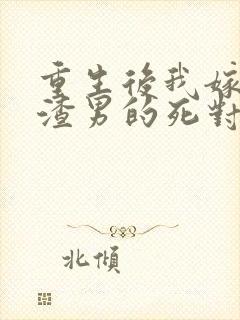 重生後我嫁
渣男的死對
北傾